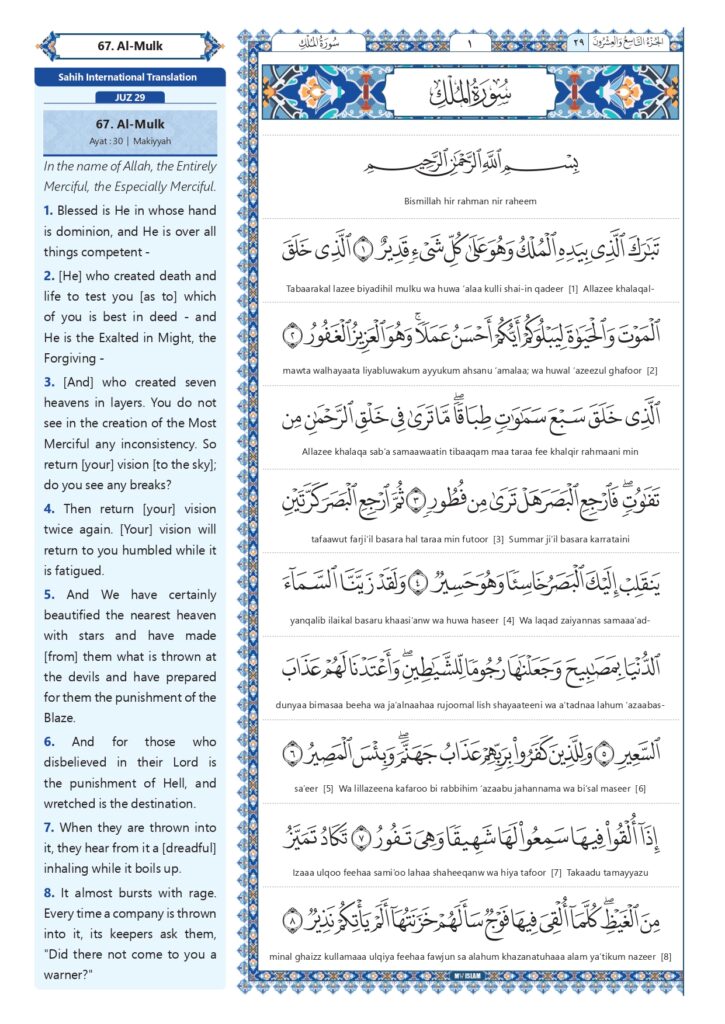 67. Al-Mulk
Sahih International Translation
JUZ 29
67. Al-Mulk
Ayat : 30 | Makiyyah
In the name of Allah, the Entirely
Merciful, the Especially Merciful.
1. Blessed is He in whose hand
is dominion, and He is over all
things competent -
2. [He] who created death and
life to test you [as to] which
of you is best in deed - and
He is the Exalted in Might, the
Forgiving -
3. [And] who created seven
heavens in layers. You do not
see in the creation of the Most
Merciful any inconsistency. So
return [your] vision [to the sky];
do you see any breaks?
4. Then return [your] vision
twice again. [Your] vision will
return to you humbled while it
is fatigued.
5. And We have certainly
beautified the nearest heaven
with stars and have made
[from] them what is thrown at
the devils and have prepared
for them the punishment of the
Blaze.
6. And for those who
disbelieved in their Lord is
the punishment of Hell, and
wretched is the destination.
7. When they are thrown into
it, they hear from it a [dreadful]
inhaling while it boils up.
8. It almost bursts with rage.
Every time a company is thrown
into it, its keepers ask them,
"Did there not come to you a
warner?"
الجزء التاسع والعشرون ٢٩
١
سورة الملك
سُورَةُ المُلْكِ
بِسْمِ اللَّهِ الرَّحْمَٰنِ الرَّحِيمِ
Bismillah hir rahman nir raheem
تَبَارَكَ الَّذِي بِيَدِهِ الْمُلْكُ وَهُوَ عَلَىٰ كُلِّ شَيْءٍ قَدِيرٌ ١ الَّذِي خَلَقَ
Tabaarakal lazee biyadihil mulku wa huwa ‘alaa kulli shai-in qadeer [1] Allazee khalaqal-
الْمَوْتَ وَالْحَيَوٰةَ لِيَبْلُوَكُمْ أَيُّكُمْ أَحْسَنُ عَمَلًا ۚ وَهُوَ الْعَزِيزُ الْغَفُورُ ٢
mawta walhayaata liyabluwakum ayyukum ahsanu ‘amalaa; wa huwal ‘azeezul ghafoor [2]
الَّذِي خَلَقَ سَبْعَ سَمَٰوَٰتٍ طِبَاقًا ۖ مَّا تَرَىٰ فِي خَلْقِ الرَّحْمَٰنِ مِن
Allazee khalaqa sab‘a samaawaatin tibaaqam maa taraa fee khalqir rahmaani min
تَفَٰوُتٍ ۖ فَارْجِعِ الْبَصَرَ هَلْ تَرَىٰ مِن فُطُورٍ ٣ ثُمَّ ارْجِعِ الْبَصَرَ كَرَّتَيْنِ
tafaawut farji‘il basara hal taraa min futoor [3] Summar ji‘il basara karrataini
يَنقَلِبْ إِلَيْكَ الْبَصَرُ خَاسِئًا وَهُوَ حَسِيرٌ ٤ وَلَقَدْ زَيَّنَّا السَّمَآءَ
yanqalib ilaikal basaru khaasi‘anw wa huwa haseer [4] Wa laqad zaiyannas samaaa‘ad-
الدُّنْيَا بِمَصَٰبِيحَ وَجَعَلْنَٰهَا رُجُومًا لِّلشَّيَٰطِينِ ۖ وَأَعْتَدْنَا لَهُمْ عَذَابَ
dunyaa bimasaa beeha wa ja‘alnaahaa rujoomal lish shayaateeni wa a‘tadnaa lahum ‘azaabas-
السَّعِيرِ ٥ وَلِلَّذِينَ كَفَرُوا۟ بِرَبِّهِمْ عَذَابُ جَهَنَّمَ ۖ وَبِئْسَ الْمَصِيرُ ٦
sa‘eer [5] Wa lillazeena kafaroo bi rabbihim ‘azaabu jahannama wa bi‘sal maseer [6]
إِذَآ أُلْقُوا۟ فِيهَا سَمِعُوا۟ لَهَا شَهِيقًا وَهِيَ تَفُورُ ٧ تَكَادُ تَمَيَّزُ
Izaaa ulqoo feehaa sami‘oo lahaa shaheeqanw wa hiya tafoor [7] Takaadu tamayyazu
مِنَ الْغَيْظِ ۖ كُلَّمَآ أُلْقِيَ فِيهَا فَوْجٌ سَأَلَهُمْ خَزَنَتُهَآ أَلَمْ يَأْتِكُمْ نَذِيرٌ ٨
minal ghaizz kullamaaa ulqiya feehaa fawjun sa alahum khazanatuhaaa alam ya‘tikum nazeer [8]
MY ISLAM